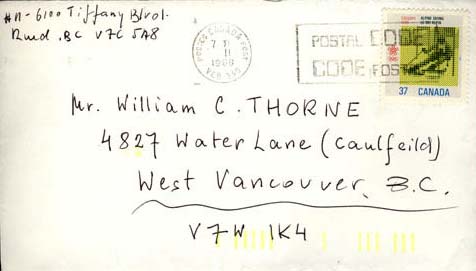 #11-6100 Tiffany Blvd.
Rmd. BC V7C 5A8
POSTES CANADA POST
7 II
1988
POSTAL CODE
CODE POSTAL
ALPINE SKIING
37 CANADA
Mr. William C. THORNE
4827 Water Lane (Caulfeild)
West Vancouver, B.C.
V7W 1K4